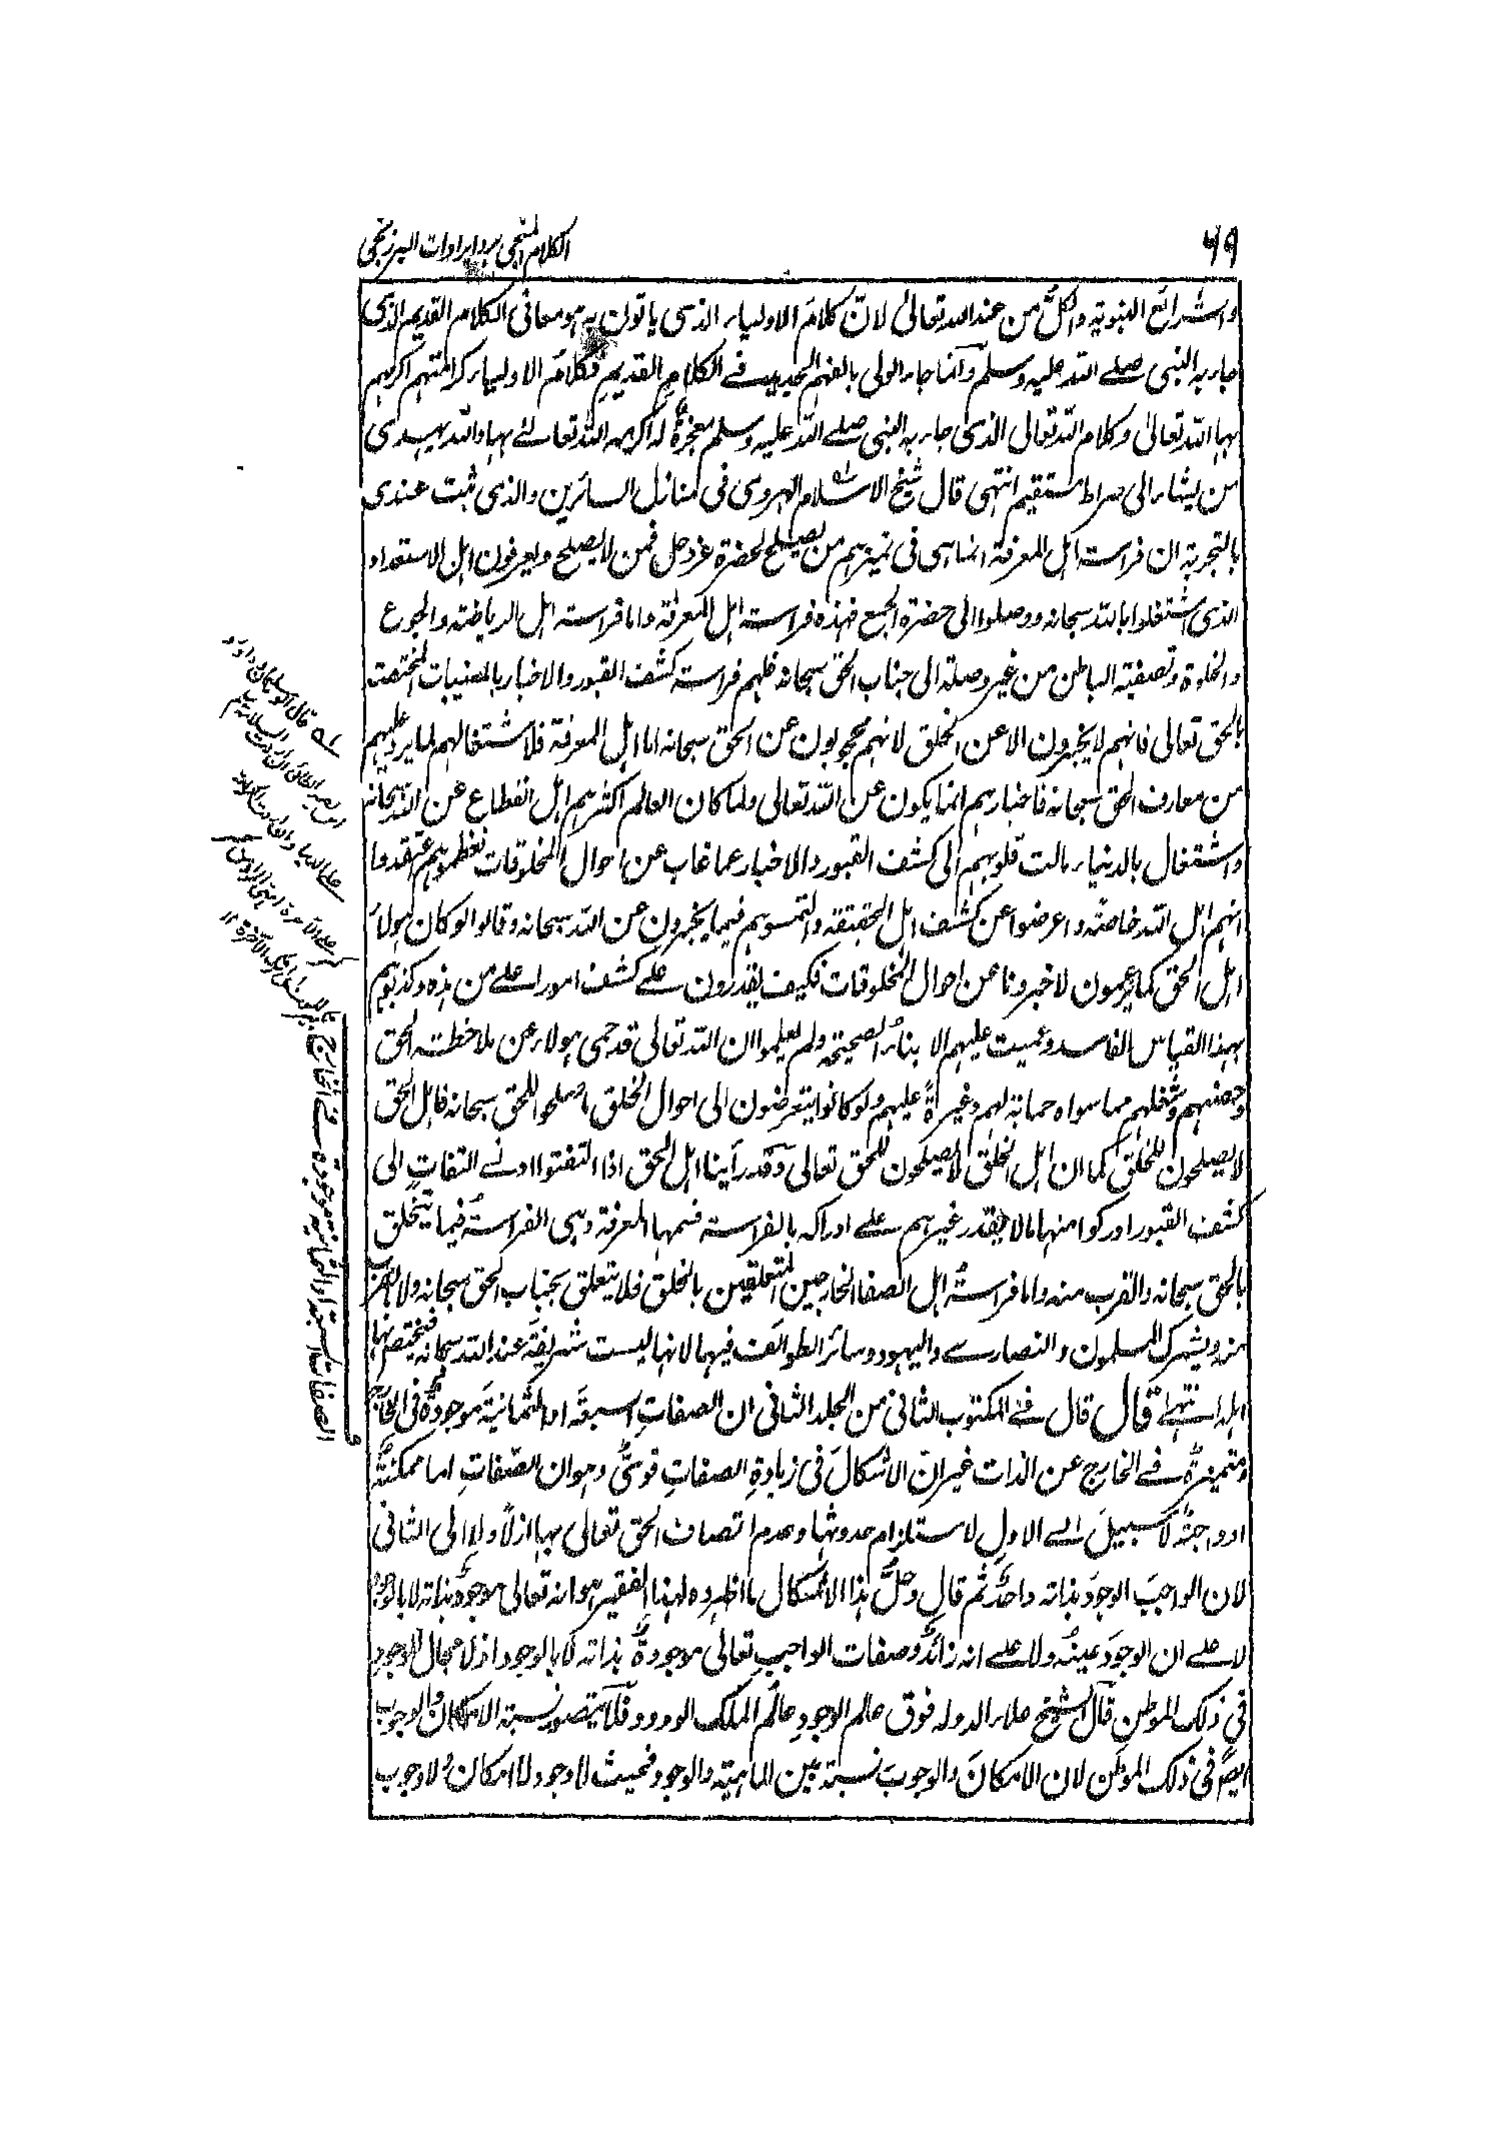 ٦٩
الكلام المنجي برد ايرادات البرزنجي
والشرائع النبوية والكل من عند الله تعالى لان كلام الاولياء الذى ياتون به هو معانى الكلام القديم الذى
جاء به النبى صلے الله عليه وسلم وانما جاء الولى بالفهم الجديد فے الكلام القديم فكلام الاولياء كرامتهم اكرمهم
بها الله تعالى وكلام الله تعالى الذى جاء به النبى صلے الله عليه وسلم معجزة له اكرمه الله تعالے بها والله يهدى
من يشاء الى صراط مستقيم انتهى قال شيخ الاسلام الهروى فى منازل السائرين والذى ثبت عندى
بالتجربة ان فراسة اهل المعرفة انما هى فى تميزهم من يصلح لحضرة عز وجل فمن لا يصلح ويعرفون اهل الاستعداد
الذى اشتغلوا بالله سبحانه ووصلوا الى حضرة الجمع فهذه فراسة اهل المعرفة واما فراسة اهل الرياضة والجوع
والخلوة وتصفية الباطن من غير وصلة الى جناب الحق سبحانه فلهم فراسة كشف القبور والاخبار بالمغيبات المختصة
بالحق تعالى فانهم لا يخبرون الا عن الخلق لانهم محجوبون عن الحق سبحانه اما اهل المعرفة فلاشتغالهم لما يرد عليهم
من معارف الحق سبحانه فاخبارهم انما يكون عن الله تعالى ولما كان العالم اكثرهم اهل انقطاع عن الله سبحانه
واشتغال بالدنيا مالت قلوبهم الى كشف القبور والاخبار عما غاب عن احوال المخلوقات فعظموهم واعتقدوا
انهم اهل الله خاصة واعرضوا عن كشف اهل الحقيقة واتهموهم فيما يخبرون عن الله سبحانه وقالوا لو كان هولاء
اهل الحق كما يزعمون لاخبرونا عن احوال المخلوقات فكيف يقدرون علے كشف امور اعلے من هذه وكذبوهم
بهذا القياس الفاسد وعميت عليهم الانباء الصحيحة ولم يعلموا ان الله تعالى قد حمى هولاء عن ملاحظة الحق
وخصهم وشغلهم مما سواه حماية لهم وغيرة عليهم ولو كانوا يتعرضون الى احوال الخلق ما صلحوا للحق سبحانه فاهل الحق
لا يصلحون للخلق كما ان اهل الخلق لا يصلحون للحق تعالى وقد رأينا اهل الحق اذا التفتوا ادنے التفات الى
كشف القبور ادركوا منها ما لا يقدر غيرهم علے ادراكه بالفراسة فمنها المعرفة وهى الفراسة فيما يتخلق
بالحق سبحانه والقرب منه واما فراسة اهل الصفا الخارجين المتعلقين بالخلق فلا يتعلق بجناب الحق سبحانه ولا القرب
منه ويشترك المسلمون والنصارے واليهود وسائر الطوائف فيها لانها ليست شريفة عند الله سبحانه فيختص بها
اهله انتهے قال قال فے المكتوب الثانى من الجلد الثانى ان الصفات السبعة او الثمانية موجودة فى الخارج
ومتميزة فے الخارج عن الذات غير ان الاشكال فى زيادة الصفات قوى وهو ان الصفات اما ممكنة
او واجبة لا سبيل الے الاول لاستلزام حدوثها وعدم اتصاف الحق تعالى بها ازلا ولا الى الثانى
لان الواجب الوجود بذاته واحد ثم قال وحل هذا الاشكال ما اظهروه لهذا الفقير هو انه تعالى موجود بذاته لا بالوجود
لا علے ان الوجود عينه ولا علے انه زائد وصفات الواجب تعالى موجودة بذاته لا بالوجود اذ لا مجال للوجود
فى ذلك الموطن قال الشيخ علاء الدوله فوق عالم الوجود عالم الملك الودود فلا يتصور نسبة الامكان والوجوب
ايضا فى ذلك الموطن لان الامكان والوجوب نسبة بين الماهية والوجود فحيث لا وجود لا امكان ولا وجوب
الصفات السبعة او الثمانية موجودة فے الخارج